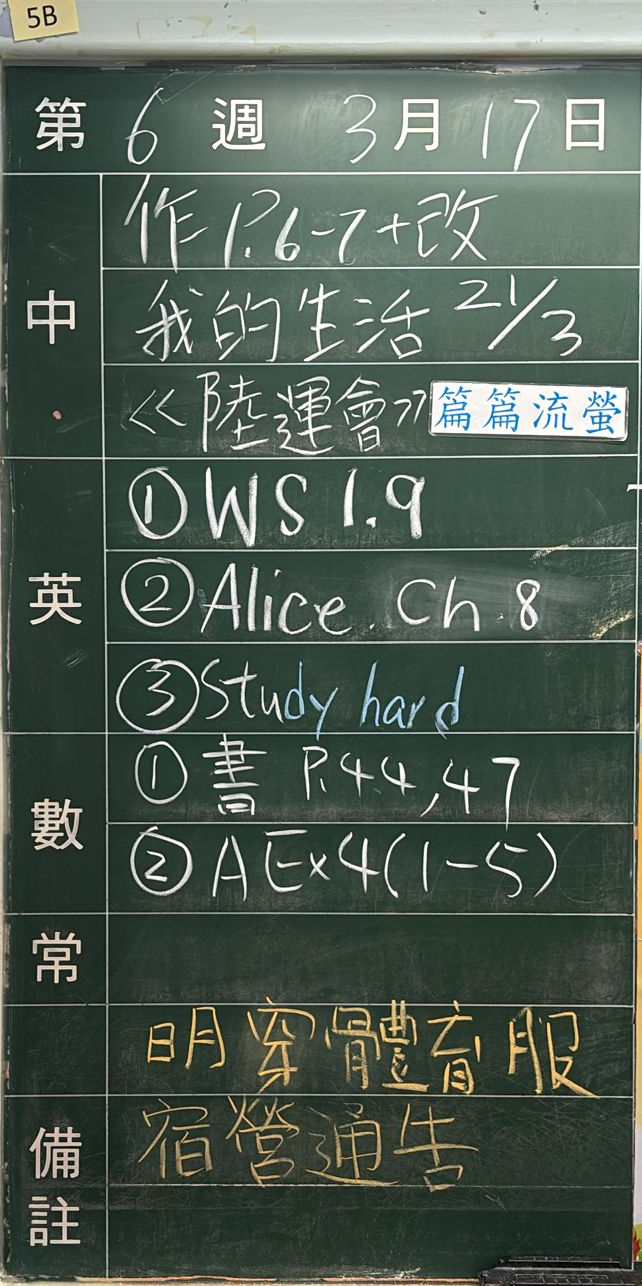 5B
第 6 週 3月17日
中
作 P.6-7+改
我的生活 21/3
<<陸運會>> 篇篇流螢
英
①WS 1.9
②Alice. Ch.8
③Study hard
數
①書 P.44,47
②AEx4(1-5)
常
明穿體育服
備註
宿營通告